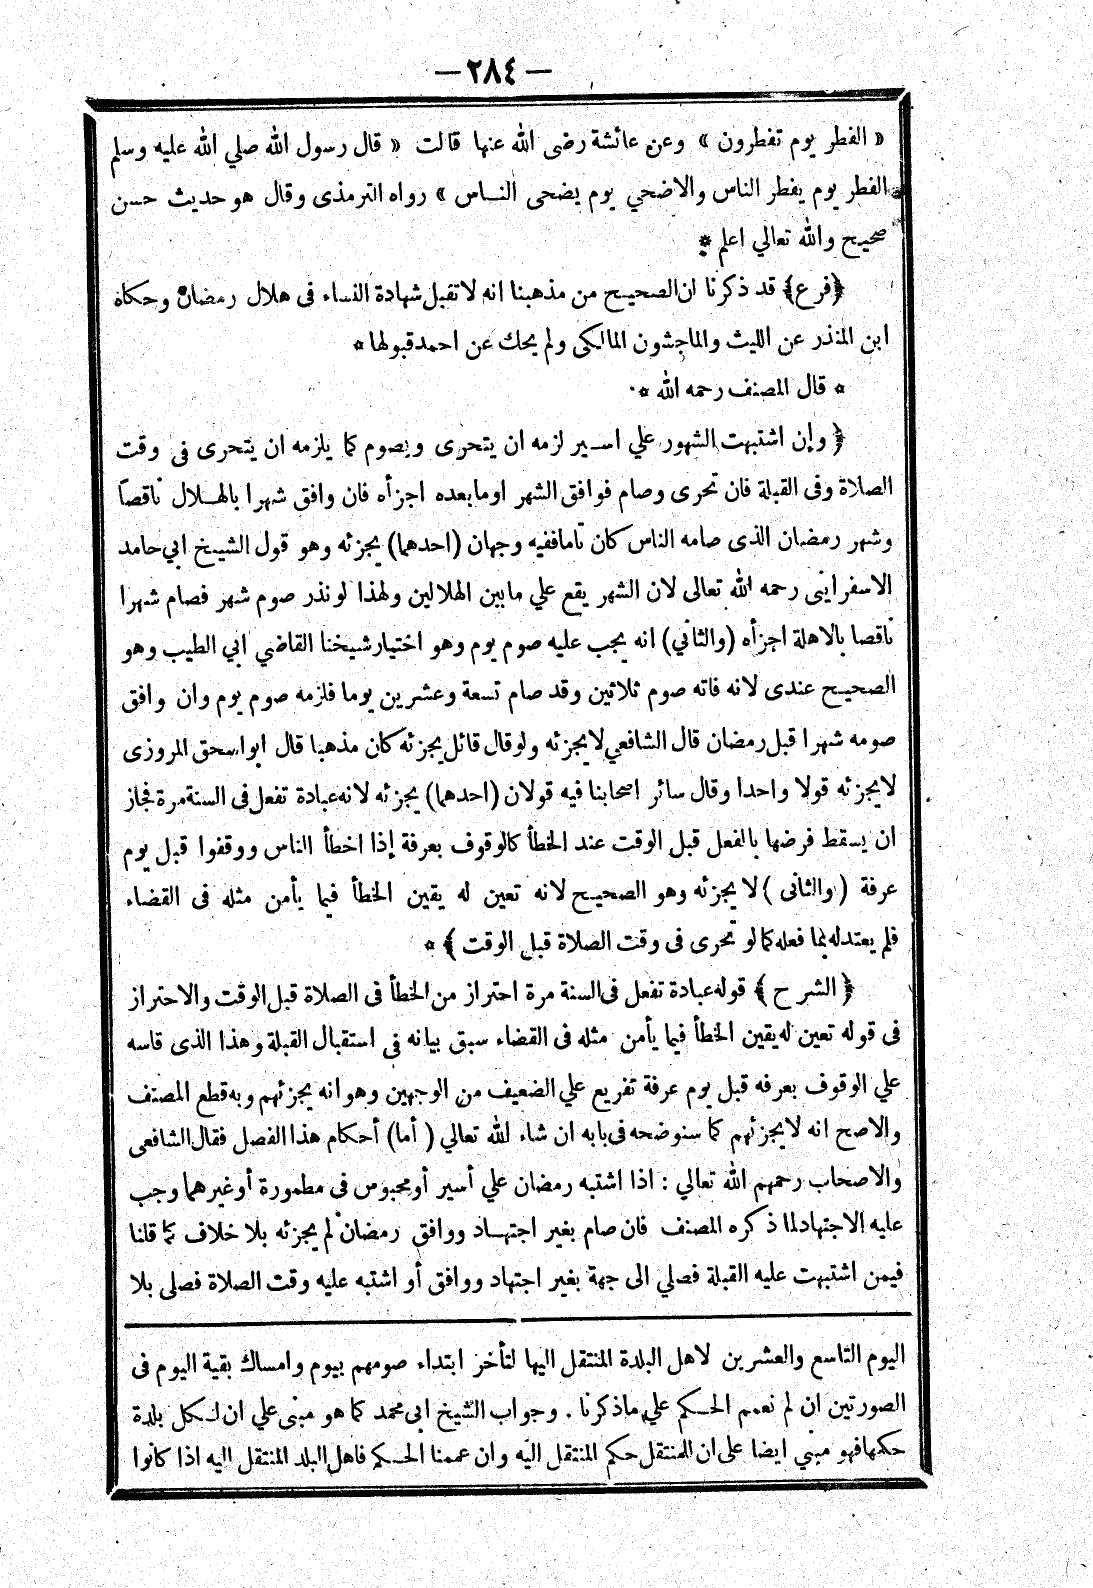 — ٢٨٤ —
« الفطر يوم تفطرون » وعن عائشة رضى الله عنها قالت « قال رسول الله صلي الله عليه وسلم
الفطر يوم يفطر الناس والاضحي يوم يضحى النـاس » رواه الترمذى وقال هو حديث حسن
صحيح والله تعالي اعلم *
﴿ فرع ﴾ قد ذكرنا ان الصحيح من مذهبنا انه لا تقبل شهادة النساء فى هلال رمضان وحكاه
ابن المنذر عن الليث والماجشون المالكى ولم يحك عن احمد قبولها *
* قال المصنف رحمه الله *
﴿ وإن اشتبهت الشهور علي اسـير لزمه ان يتحرى ويصوم كما يلزمه ان يتحرى فى وقت
الصلاة وفى القبلة فان تحرى وصام فوافق الشهر اوما بعده اجزأه فان وافق شهرا بالهـلال ناقصًا
وشهر رمضان الذى صامه الناس كان تاما ففيه وجهان (احدهما) يجزئه وهو قول الشيخ ابي حامد
الاسفراينى رحمه الله تعالى لان الشهر يقع علي مابين الهلالين ولهذا لو نذر صوم شهر فصام شهرا
ناقصا بالاهلة اجزأه (والثاني) انه يجب عليه صوم يوم وهو اختيار شيخنا القاضي ابي الطيب وهو
الصحيح عندى لانه فاته صوم ثلاثين وقد صام تسعة وعشرين يوما فلزمه صوم يوم وان وافق
صومه شهرا قبل رمضان قال الشافعي لا يجزئه ولو قال قائل يجزئه كان مذهبا قال ابو اسحق المروزى
لا يجزئه قولا واحدا وقال سائر اصحابنا فيه قولان (احدهما) يجزئه لانه عبادة تفعل فى السنة مرة فجاز
ان يسقط فرضها بالفعل قبل الوقت عند الخطأ كالوقوف بعرفة إذا اخطأ الناس ووقفوا قبل يوم
عرفة (والثانى) لا يجزئه وهو الصحيح لانه تعين له يقين الخطأ فيما يأمن مثله فى القضاء
فلم يعتد له بما فعله كما لو تحرى فى وقت الصلاة قبل الوقت ﴾ *
﴿ الشرح ﴾ قوله عبادة تفعل فى السنة مرة احتراز من الخطأ فى الصلاة قبل الوقت والاحتراز
فى قوله تعين له يقين الخطأ فيما يأمن مثله فى القضاء سبق بيانه في استقبال القبلة وهذا الذى قاسه
علي الوقوف بعرفه قبل يوم عرفة تفريع علي الضعيف من الوجهين وهو انه يجزئهم وبه قطع المصنف
والاصح انه لا يجزئهم كما سنوضحه فى بابه ان شاء الله تعالي ( أما) أحكام هذا الفصل فقال الشافعى
والاصحاب رحمهم الله تعالي : اذا اشتبه رمضان علي أسير أو محبوس فى مطمورة أو غيرهما وجب
عليه الاجتهاد لما ذكره المصنف فان صام بغير اجتهـاد ووافق رمضان لم يجزئه بلا خلاف كما قلنا
فيمن اشتبهت عليه القبلة فصلي الى جهة بغير اجتهاد ووافق أو اشتبه عليه وقت الصلاة فصلى بلا
اليوم التاسع والعشرين لاهل البلدة المنتقل اليها لتأخر ابتداء صومهم بيوم وامساك بقية اليوم فى
الصورتين ان لم نعمم الحـكم علي ماذكرنا . وجواب الشيخ ابي محمد كما هو مبنى علي ان لـكل بلدة
حكمها فهو مبني ايضا على ان للمنتقل حكم المنتقل اليه وان عممنا الحـكم فاهل البلد المنتقل اليه اذا كانوا